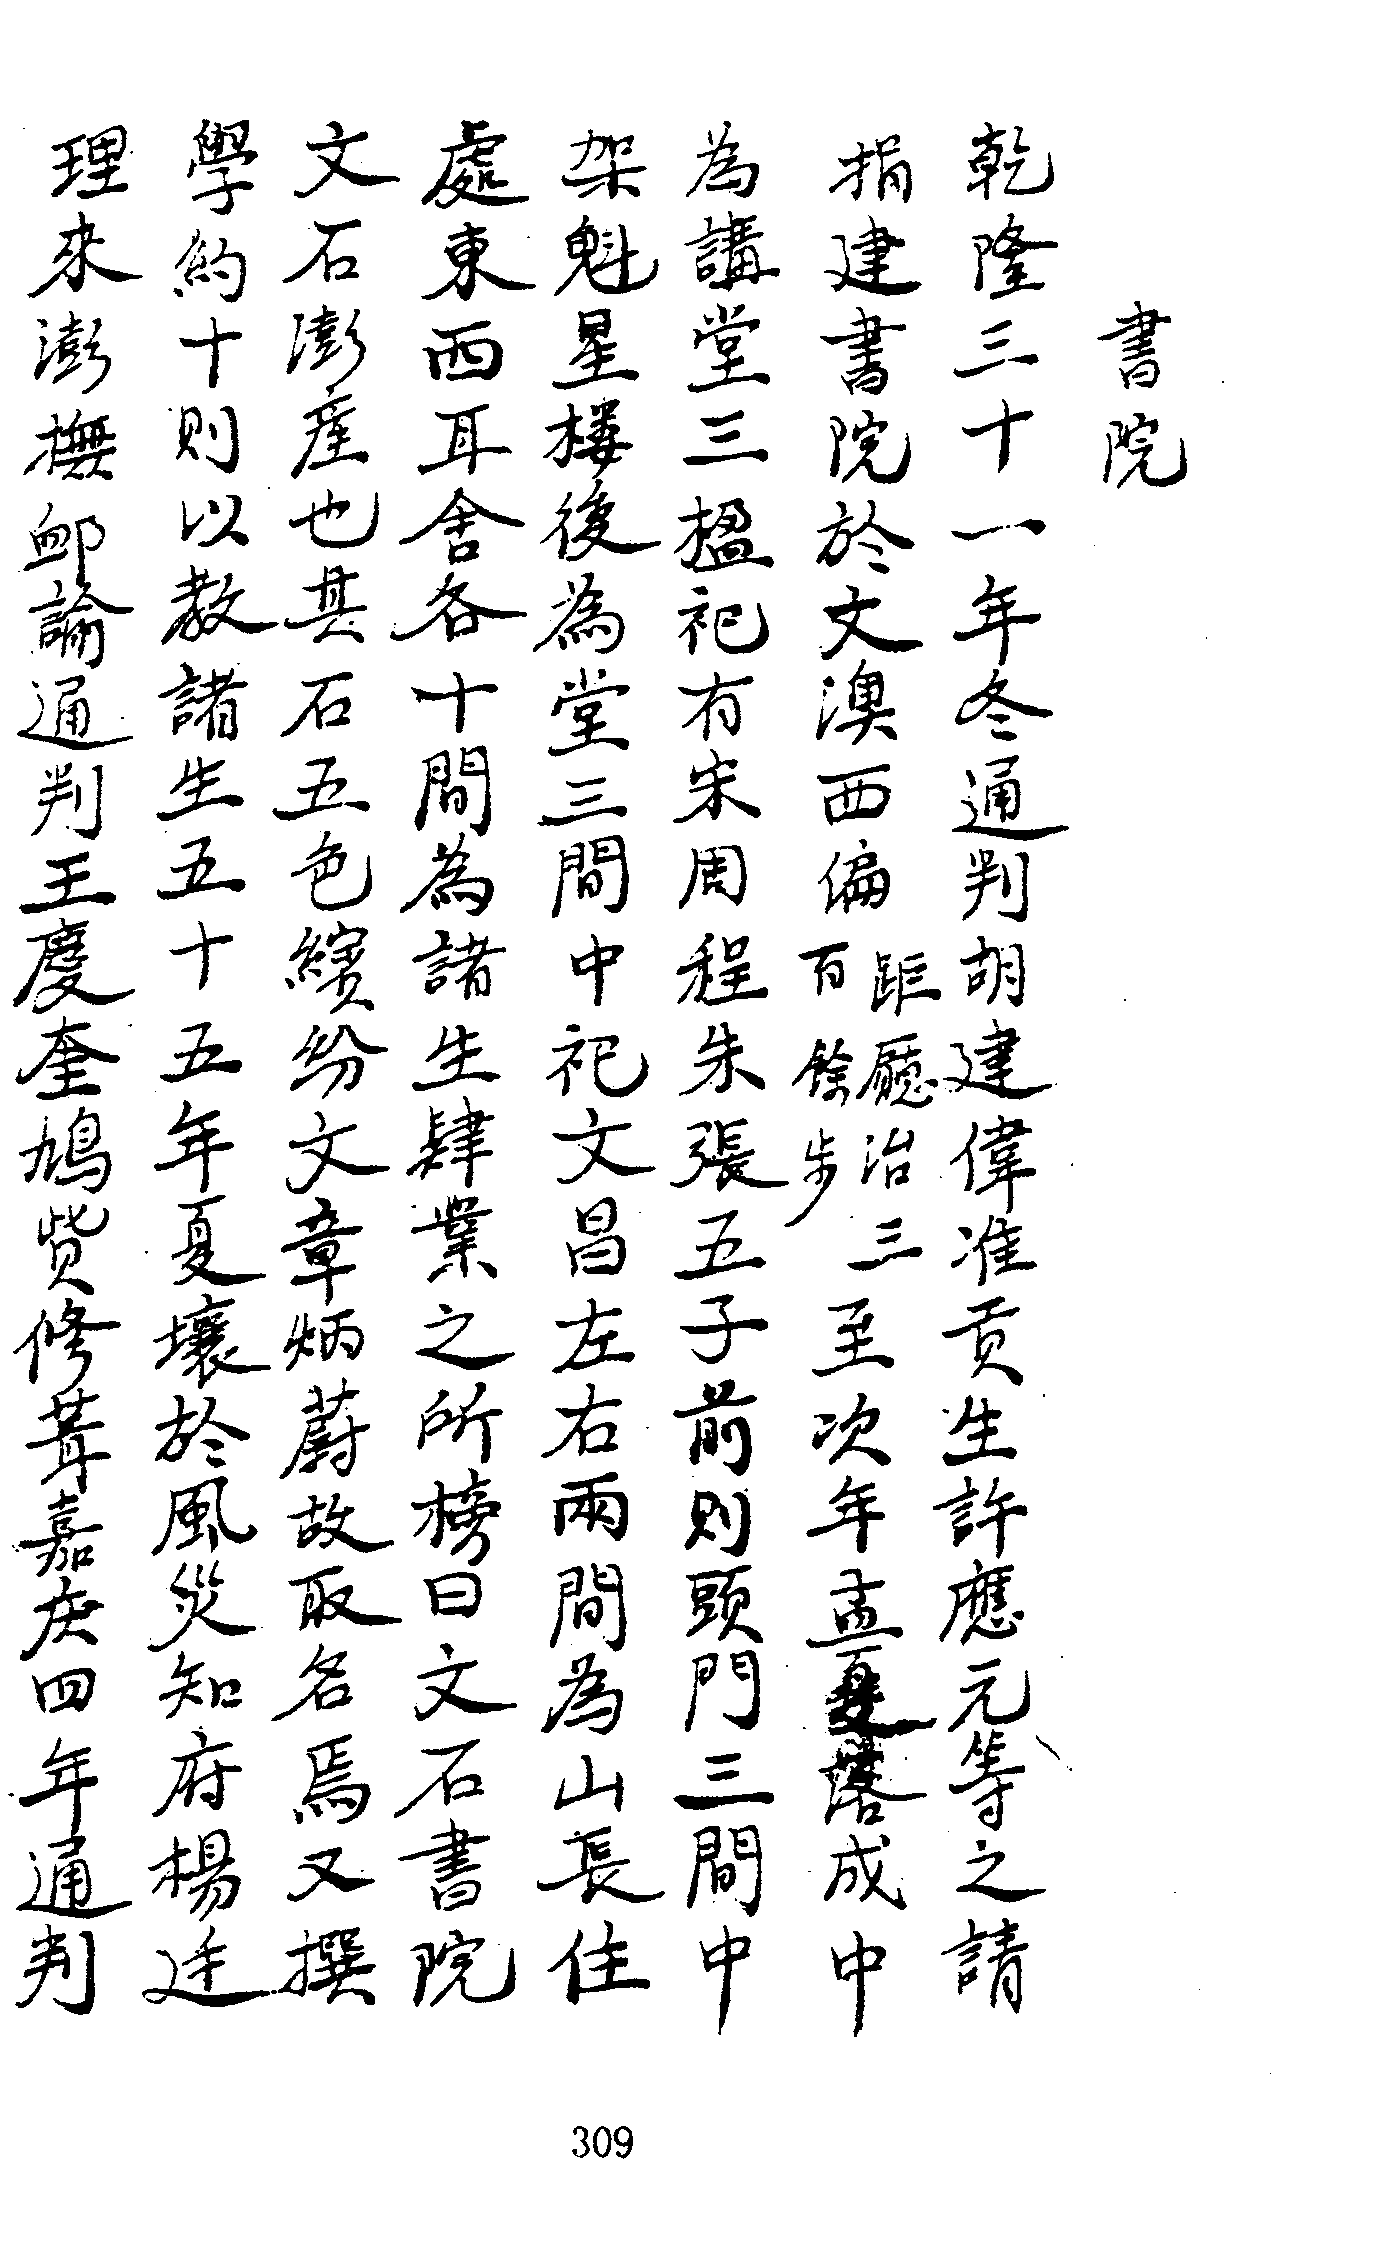 書院
乾隆三十一年冬通判胡建偉准貢生許應元等之請
捐建書院於文澳西偏距廳治三百餘步至次年孟夏落成中
為講堂三楹祀有宋周程朱張五子前則頭門三間中
架魁星樓後為堂三間中祀文昌左右兩間為山長住
處東西耳舍各十間為諸生肄業之所榜曰文石書院
文石澎產也其石五色繽紛文章炳蔚故取名焉又撰
學約十則以教諸生五十五年夏壞於風災知府楊廷
理來澎撫卹諭通判王慶奎鳩貲修葺嘉庚四年通判
309